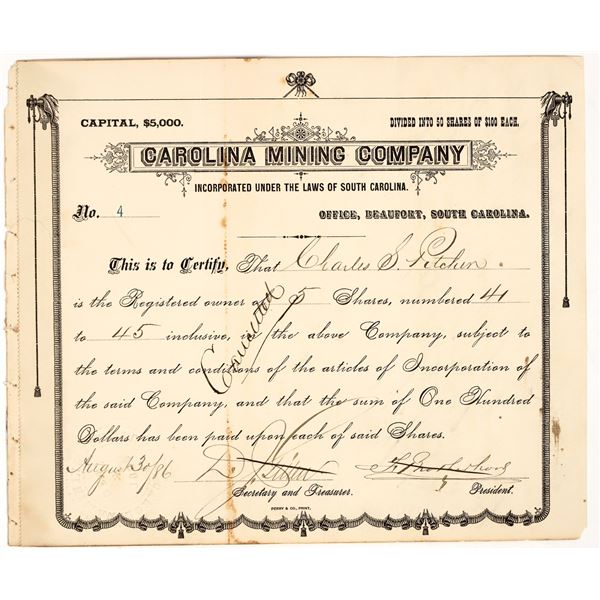 CAPITAL, $5,000.
DIVIDED INTO 50 SHARES OF $100 EACH.
CAROLINA MINING COMPANY
INCORPORATED UNDER THE LAWS OF SOUTH CAROLINA.
No. 4
OFFICE, BEAUFORT, SOUTH CAROLINA.
This is to Certify, That Charles S. Pitcher
is the Registered owner of 5 Shares, numbered 41
to 45 inclusive, in the above Company, subject to
the terms and conditions of the articles of Incorporation of
the said Company, and that the sum of One Hundred
Dollars has been paid upon each of said Shares.
Cancelled
August 30/86
Secretary and Treasurer.
President.
PERRY & CO., PRINT.